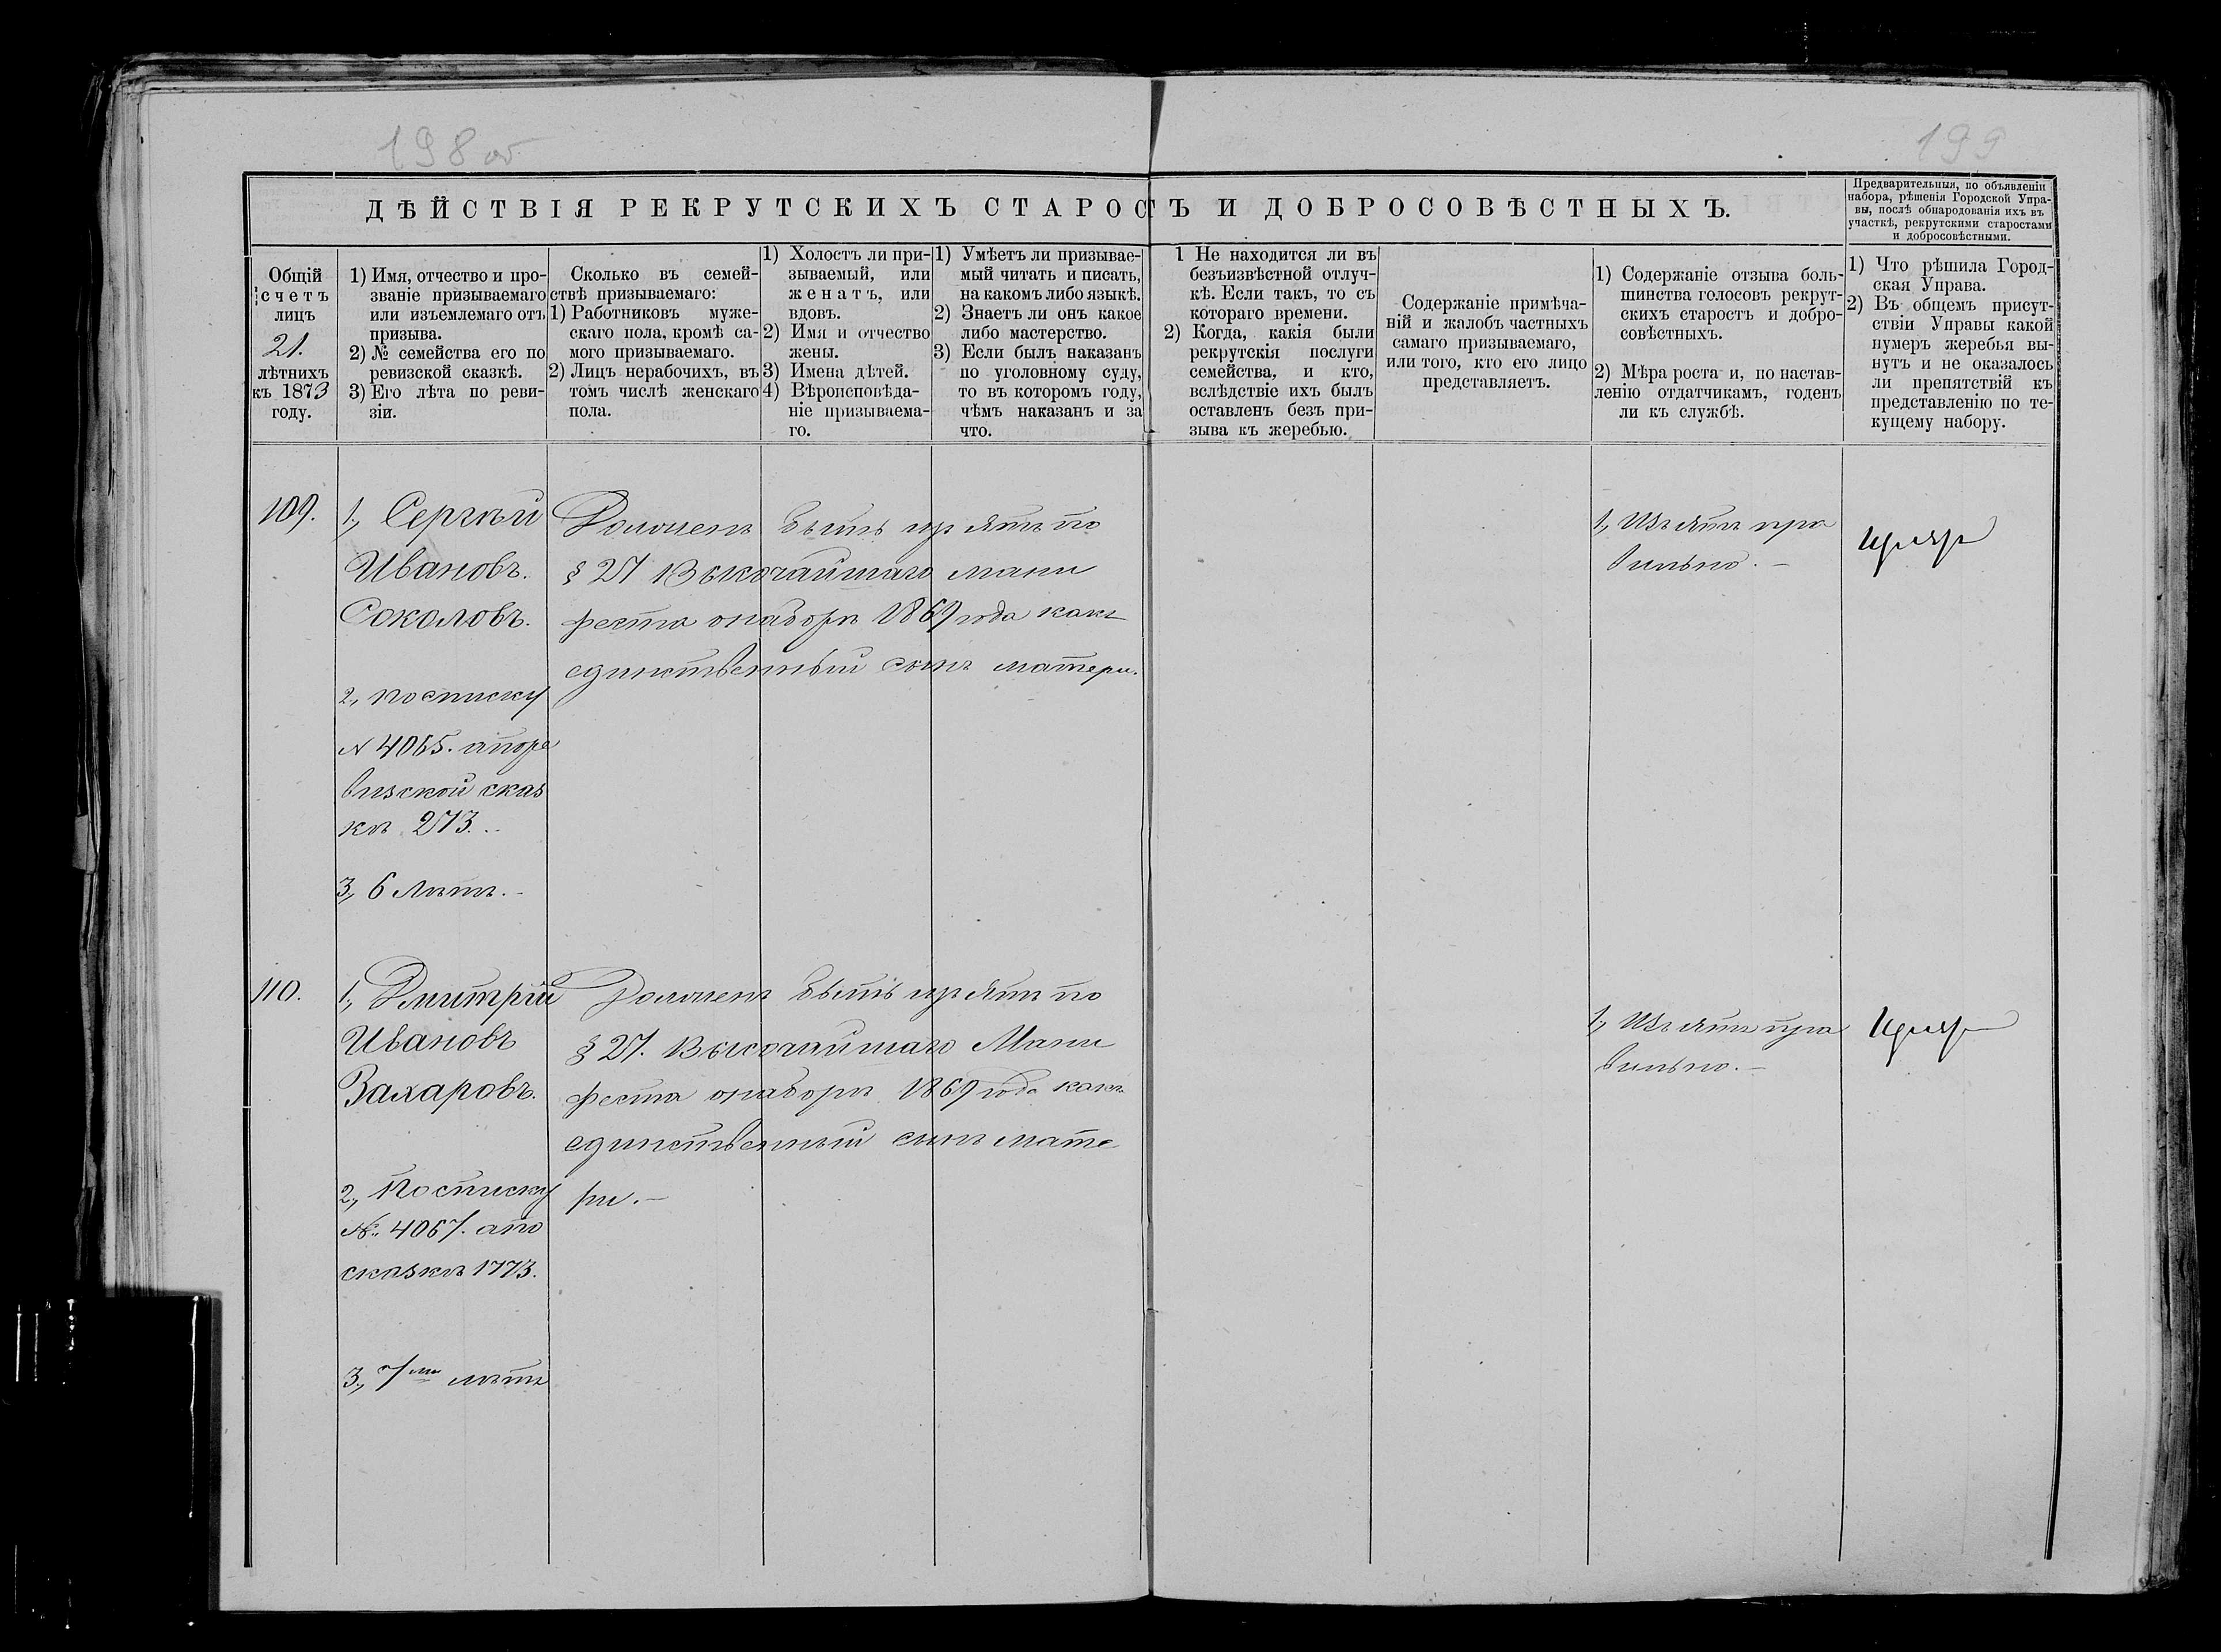 198 об
199
ДѢЙСТВІЯ РЕКРУТСКИХЪ СТАРОСТЪ И ДОБРОСОВѢСТНЫХЪ.
Предварительныя, по объявленіи
набора, рѣшенія Городской Упра-
вы, послѣ обнародованія ихъ въ
участкѣ, рекрутскими старостами
и добросовѣстными.
Общій
счетъ
лицъ
21.
лѣтнихъ
къ 1873
году.
1) Имя, отчество и про-
званіе призываемаго
или изъемлемаго отъ
призыва.
2) № семейства его по
ревизской сказкѣ.
3) Его лѣта по реви-
зіи.
Сколько въ семей-
ствѣ призываемаго:
1) Работниковъ муже-
скаго пола, кромѣ са-
мого призываемаго.
2) Лицъ нерабочихъ, въ
томъ числѣ женскаго
пола.
1) Холостъ ли при-
зываемый, или
женатъ, или
вдовъ.
2) Имя и отчество
жены.
3) Имена дѣтей.
4) Вѣроисповѣда-
ніе призываема-
го.
1) Умѣетъ ли призывае-
мый читать и писать,
на какомъ либо языкѣ.
2) Знаетъ ли онъ какое
либо мастерство.
3) Если былъ наказанъ
по уголовному суду,
то въ которомъ году,
чѣмъ наказанъ и за
что.
1 Не находится ли въ
безъизвѣстной отлуч-
кѣ. Если такъ, то съ
котораго времени.
2) Когда, какія были
рекрутскія послуги
семейства, и кто,
вслѣдствіе ихъ былъ
оставленъ безъ при-
зыва къ жеребью.
Содержаніе примѣча-
ній и жалобъ частныхъ
самаго призываемаго,
или того, кто его лицо
представляетъ.
1) Содержаніе отзыва боль-
шинства голосовъ рекрут-
скихъ старостъ и добро-
совѣстныхъ.
2) Мѣра роста и, по настав-
ленію отдатчикамъ, годенъ
ли къ службѣ.
1) Что рѣшила Город-
ская Управа.
2) Въ общемъ присут-
ствіи Управы какой
нумеръ жеребья вы-
нутъ и не оказалось
ли препятствій къ
представленію по те-
кущему набору.
109.
1., Сергѣй
Ивановъ.
Соколовъ.
2., по списку
№ 4065. а по ре
визской сказ
кѣ 273.
3., 6 лѣтъ.-
Долженъ быть изъятъ по
§ 27 Высочайшаго мани
феста о наборѣ 1869 года какъ
единственный сынъ матери.
1., Изъятъ пра
вильно.-
110.
1., Дмитрій
Ивановъ
Захаровъ.
2., По списку
№ 4067. а по
сказкѣ 1773.
3., 7ми лѣтъ
Долженъ быть изъятъ по
§ 27. Высочайшаго Мани
феста о наборѣ 1869 года какъ
единственный сынъ мате
ри.-
1., Изъятъ пра
вильно.-